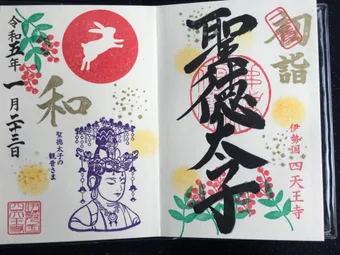 初詣
聖徳太子
伊勢国 四天王寺
令和五年
一月二十三日
和
聖徳太子の
観音さま